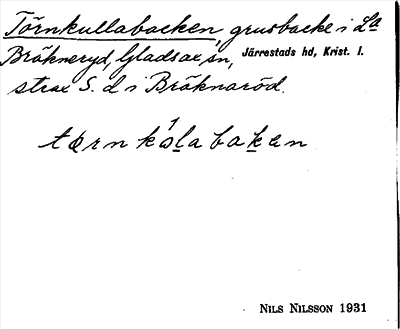 Törnkullabacken, grusbacke i La
Bräkneryd, Gladsax sn, Järrestads hd, Krist. l.
strax S. d i Bräknaröd.
tœrn kòlabakan
NILS NILSSON 1931